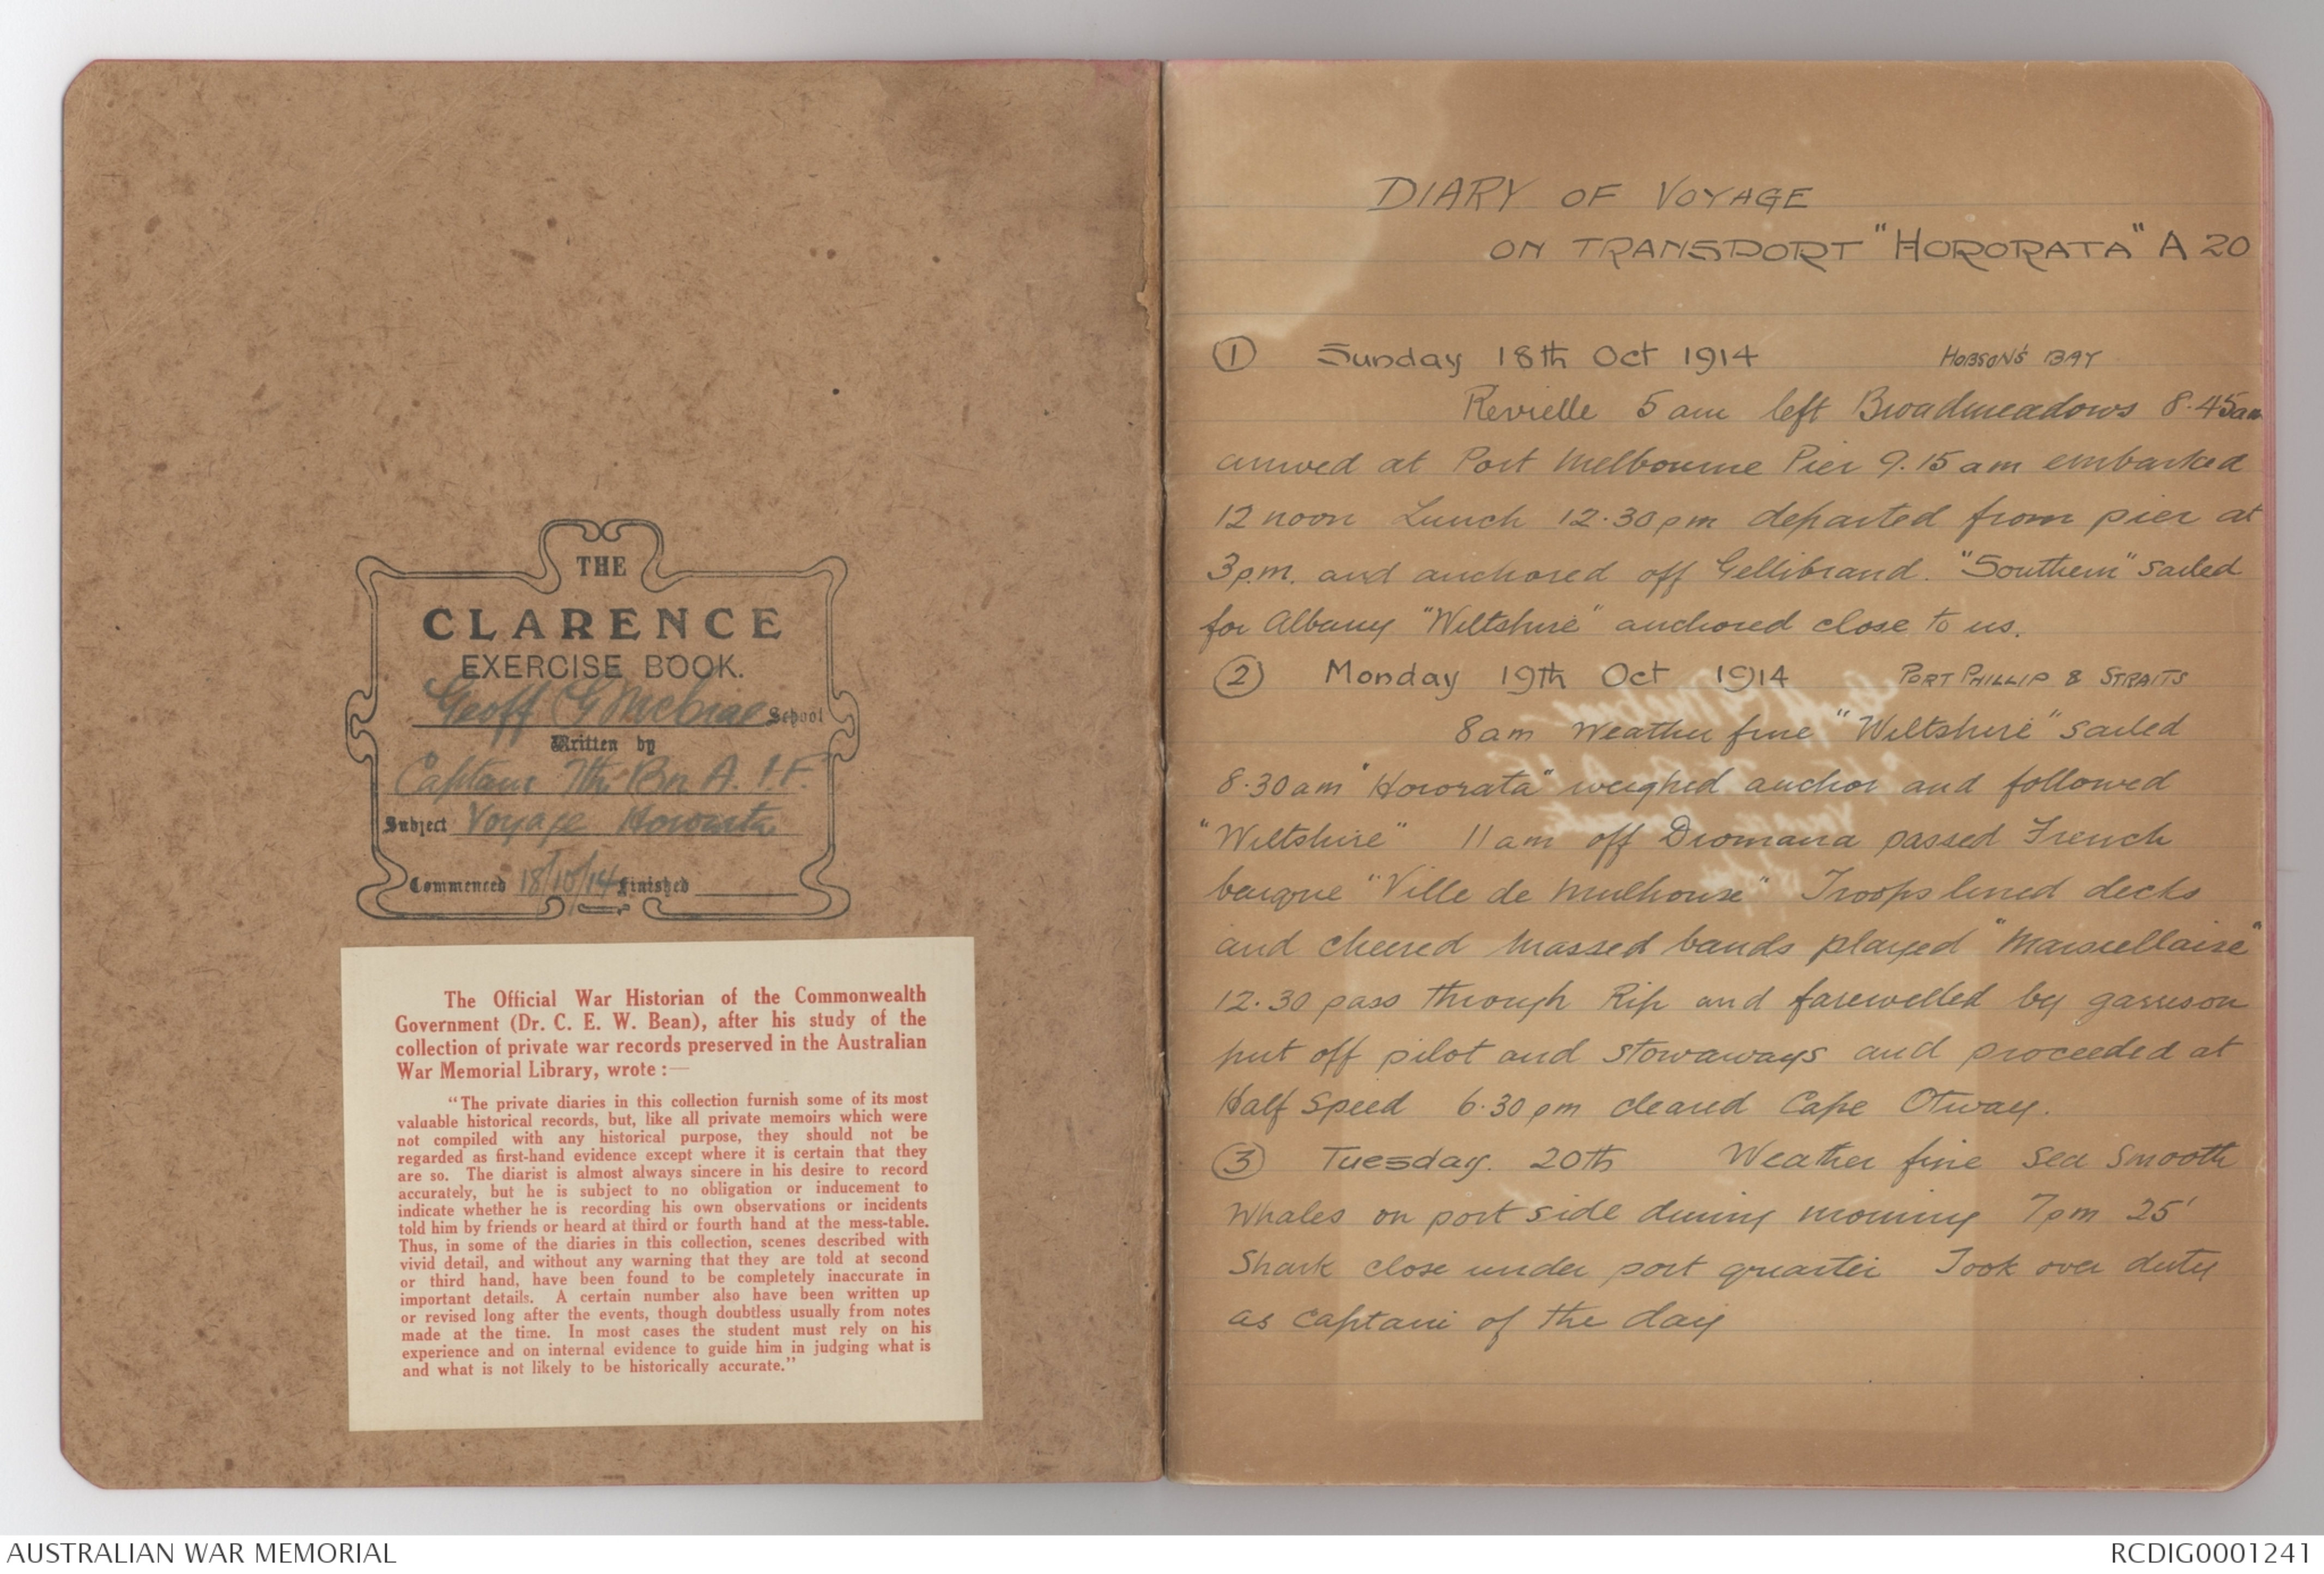 THE
CLARENCE
EXERCISE BOOK.
Geoff G McCrae School
Written by
Captain 7th Bn A.I.F.
Subject Voyage Hororata
Commenced 18/10/14 Finished
The Official War Historian of the Commonwealth
Government (Dr. C. E. W. Bean), after his study of the
collection of private war records preserved in the Australian
War Memorial Library, wrote :—
"The private diaries in this collection furnish some of its most
valuable historical records, but, like all private memoirs which were
not compiled with any historical purpose, they should not be
regarded as first-hand evidence except where it is certain that they
are so. The diarist is almost always sincere in his desire to record
accurately, but he is subject to no obligation or inducement to
indicate whether he is recording his own observations or incidents
told him by friends or heard at third or fourth hand at the mess-table.
Thus, in some of the diaries in this collection, scenes described with
vivid detail, and without any warning that they are told at second
or third hand, have been found to be completely inaccurate in
important details. A certain number also have been written up
or revised long after the events, though doubtless usually from notes
made at the time. In most cases the student must rely on his
experience and on internal evidence to guide him in judging what is
and what is not likely to be historically accurate."
DIARY OF VOYAGE
ON TRANSPORT "HORORATA" A 20
① Sunday 18th Oct 1914 HOBSON'S BAY
Revielle 5 am left Broadmeadows 8.45am
arrived at Port Melbourne Pier 9.15 am embarked
12 noon Lunch 12.30pm departed from pier at
3p.m. and anchored off Gellibrand. "Southern" sailed
for Albany "Wiltshire" anchored close to us.
② Monday 19th Oct 1914 PORT PHILLIP & STRAITS
8am Weather fine "Wiltshire" sailed
8.30am "Hororata" weighed anchor and followed
"Wiltshire" 11am off Dromana passed French
barque "Ville de Mulhouse" Troops lined decks
and cheered Massed bands played "Marseillaise"
12.30 pass through Rip and farewelled by garrison
put off pilot and stowaways and proceeded at
Half Speed 6.30pm cleared Cape Otway.
③ Tuesday. 20th Weather fine Sea Smooth
Whales on port side during morning 7pm 25'
Shark close under port quarter Took over duty
as Captain of the day
AUSTRALIAN WAR MEMORIAL
RCDIG0001241